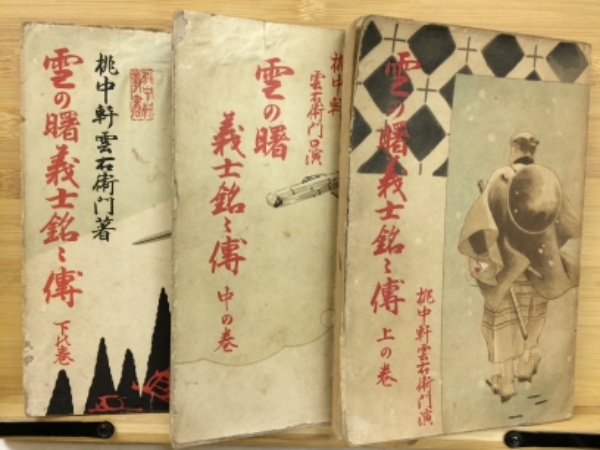 雪の曙義士銘々傳
上の巻
桃中軒雲右衛門演
桃中軒
雲右衛門口演
雪の曙
義士銘々傳
中の巻
桃中軒雲右衛門著
雪の曙義士銘々傳
下の巻